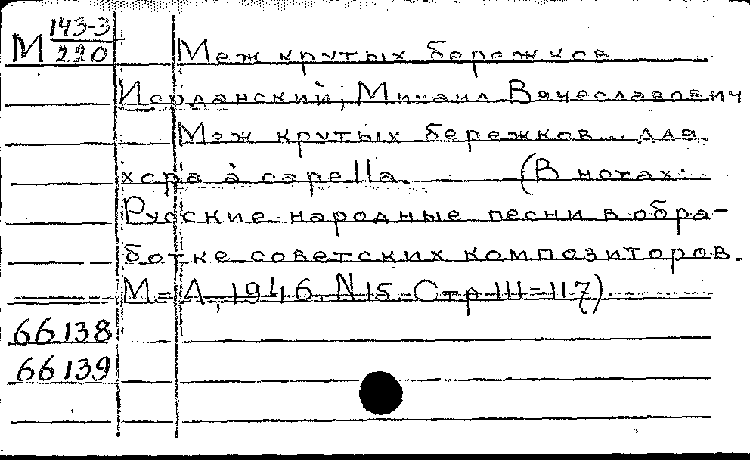 М 143-3/220 Меж крутых бережков
Иорданский, Михаил Вячеславович
Меж крутых бережков... для
хора à capella. (В нотах:
Русские народные песни в обра-
ботке советских композиторов.
М-Л, 1946. N15. Стр 111-117)
66138
66139